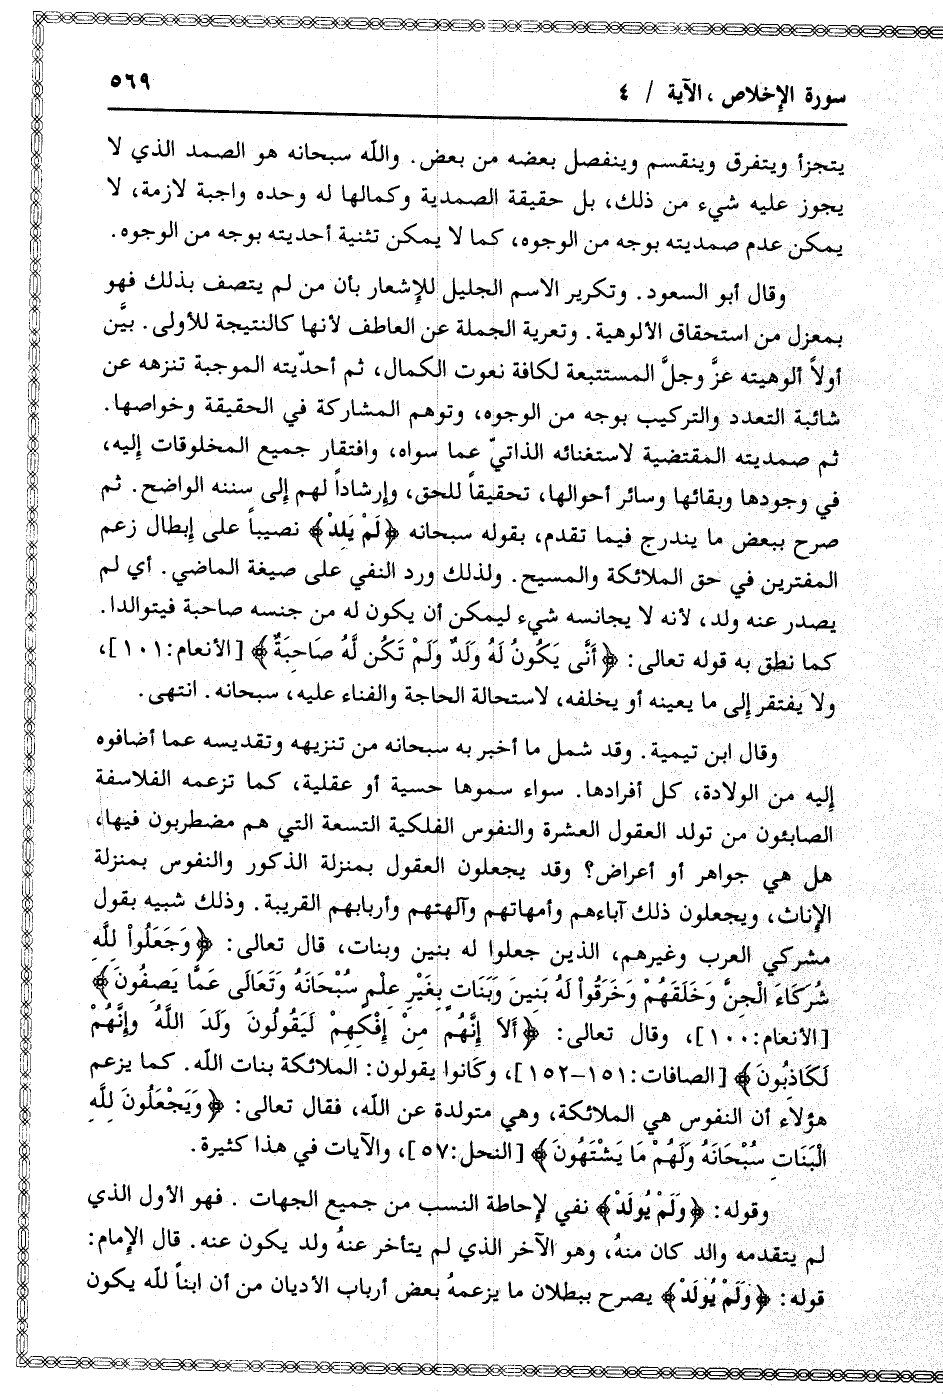 سورة الإخلاص ، الآية / ٤
٥٦٩
يتجزأ ويتفرق وينقسم وينفصل بعضه من بعض. واللّه سبحانه هو الصمد الذي لا
يجوز عليه شيء من ذلك، بل حقيقة الصمدية وكمالها له وحده واجبة لازمة، لا
يمكن عدم صمديته بوجه من الوجوه، كما لا يمكن تثنية أحديته بوجه من الوجوه.
وقال أبو السعود. وتكرير الاسم الجليل للإشعار بأن من لم يتصف بذلك فهو
بمعزل من استحقاق الألوهية. وتعرية الجملة عن العاطف لأنها كالنتيجة للأولى. بيَّن
أولاً ألوهيته عزَّ وجلَّ المستتبعة لكافة نعوت الكمال، ثم أحديّته الموجبة تنزهه عن
شائبة التعدد والتركيب بوجه من الوجوه، وتوهم المشاركة في الحقيقة وخواصها.
ثم صمديته المقتضية لاستغنائه الذاتيّ عما سواه، وافتقار جميع المخلوقات إليه،
في وجودها وبقائها وسائر أحوالها، تحقيقاً للحق، وإرشاداً لهم إلى سننه الواضح. ثم
صرح ببعض ما يندرج فيما تقدم، بقوله سبحانه ﴿لَمْ يَلِدْ﴾ نصيباً على إبطال زعم
المفترين في حق الملائكة والمسيح. ولذلك ورد النفي على صيغة الماضي. أي لم
يصدر عنه ولد، لأنه لا يجانسه شيء ليمكن أن يكون له من جنسه صاحبة فيتوالدا.
كما نطق به قوله تعالى: ﴿أَنَّى يَكُونُ لَهُ وَلَدٌ وَلَمْ تَكُن لَّهُ صَاحِبَةٌ﴾ [الأنعام:١٠١]،
ولا يفتقر إلى ما يعينه أو يخلفه، لاستحالة الحاجة والفناء عليه، سبحانه. انتهى.
وقال ابن تيمية. وقد شمل ما أخبر به سبحانه من تنزيهه وتقديسه عما أضافوه
إليه من الولادة، كل أفرادها. سواء سموها حسية أو عقلية، كما تزعمه الفلاسفة
الصابئون من تولد العقول العشرة والنفوس الفلكية التسعة التي هم مضطربون فيها،
هل هي جواهر أو أعراض؟ وقد يجعلون العقول بمنزلة الذكور والنفوس بمنزلة
الإناث، ويجعلون ذلك آباءهم وأمهاتهم وآلهتهم وأربابهم القريبة. وذلك شبيه بقول
مشركي العرب وغيرهم، الذين جعلوا له بنين وبنات، قال تعالى: ﴿وَجَعَلُواْ لِلَّهِ
شُرَكَاءَ الْجِنَّ وَخَلَقَهُمْ وَخَرَقُواْ لَهُ بَنِينَ وَبَنَاتٍ بِغَيْرِ عِلْمٍ سُبْحَانَهُ وَتَعَالَى عَمَّا يَصِفُونَ﴾
[الأنعام:١٠٠]، وقال تعالى: ﴿أَلاَ إِنَّهُم مِنْ إِفْكِهِمْ لَيَقُولُونَ وَلَدَ اللَّهُ وإِنَّهُمْ
لَكَاذِبُونَ﴾ [الصافات:١٥١-١٥٢]، وكانوا يقولون: الملائكة بنات اللّه. كما يزعم
هؤلاء أن النفوس هي الملائكة، وهي متولدة عن الله، فقال تعالى: ﴿وَيَجْعَلُونَ لِلَّهِ
الْبَنَاتِ سُبْحَانَهُ وَلَهُمْ مَا يَشْتَهُونَ﴾ [النحل:٥٧]، والآيات في هذا كثيرة.
وقوله: ﴿وَلَمْ يُولَدْ﴾ نفي لإحاطة النسب من جميع الجهات . فهو الأول الذي
لم يتقدمه والد كان منهُ، وهو الآخر الذي لم يتأخر عنهُ ولد يكون عنه. قال الإمام:
قوله: ﴿وَلَمْ يُولَدْ﴾ يصرح ببطلان ما يزعمهُ بعض أرباب الأديان من أن ابناً للّه يكون